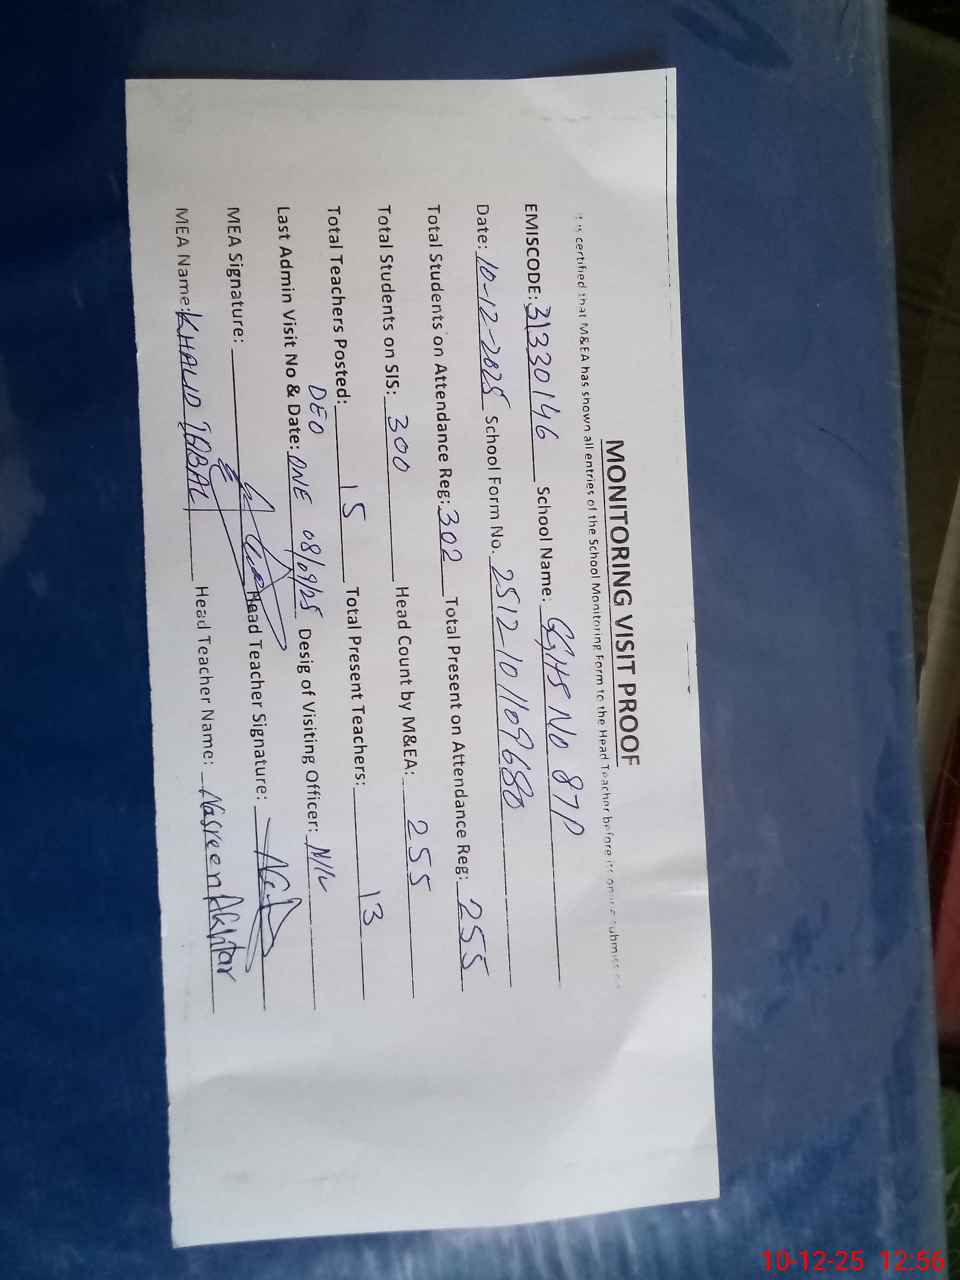 MONITORING VISIT PROOF
It is certified that M&EA has shown all entries of the School Monitoring Form to the Head Teacher before its online submission
EMISCODE: 31330146 School Name: GGHS No 87P
Date: 10-12-2025 School Form No. 2512-101109680
Total Students on Attendance Reg: 302 Total Present on Attendance Reg: 255
Total Students on SIS: 300 Head Count by M&EA: 255
Total Teachers Posted: 15 Total Present Teachers: 13
DEO
Last Admin Visit No & Date: ONE 08/09/25 Desig of Visiting Officer: NIL
MEA Signature: Head Teacher Signature:
MEA Name: KHALID IQBAL Head Teacher Name: Nasreen Akhtar
10-12-25 12:56